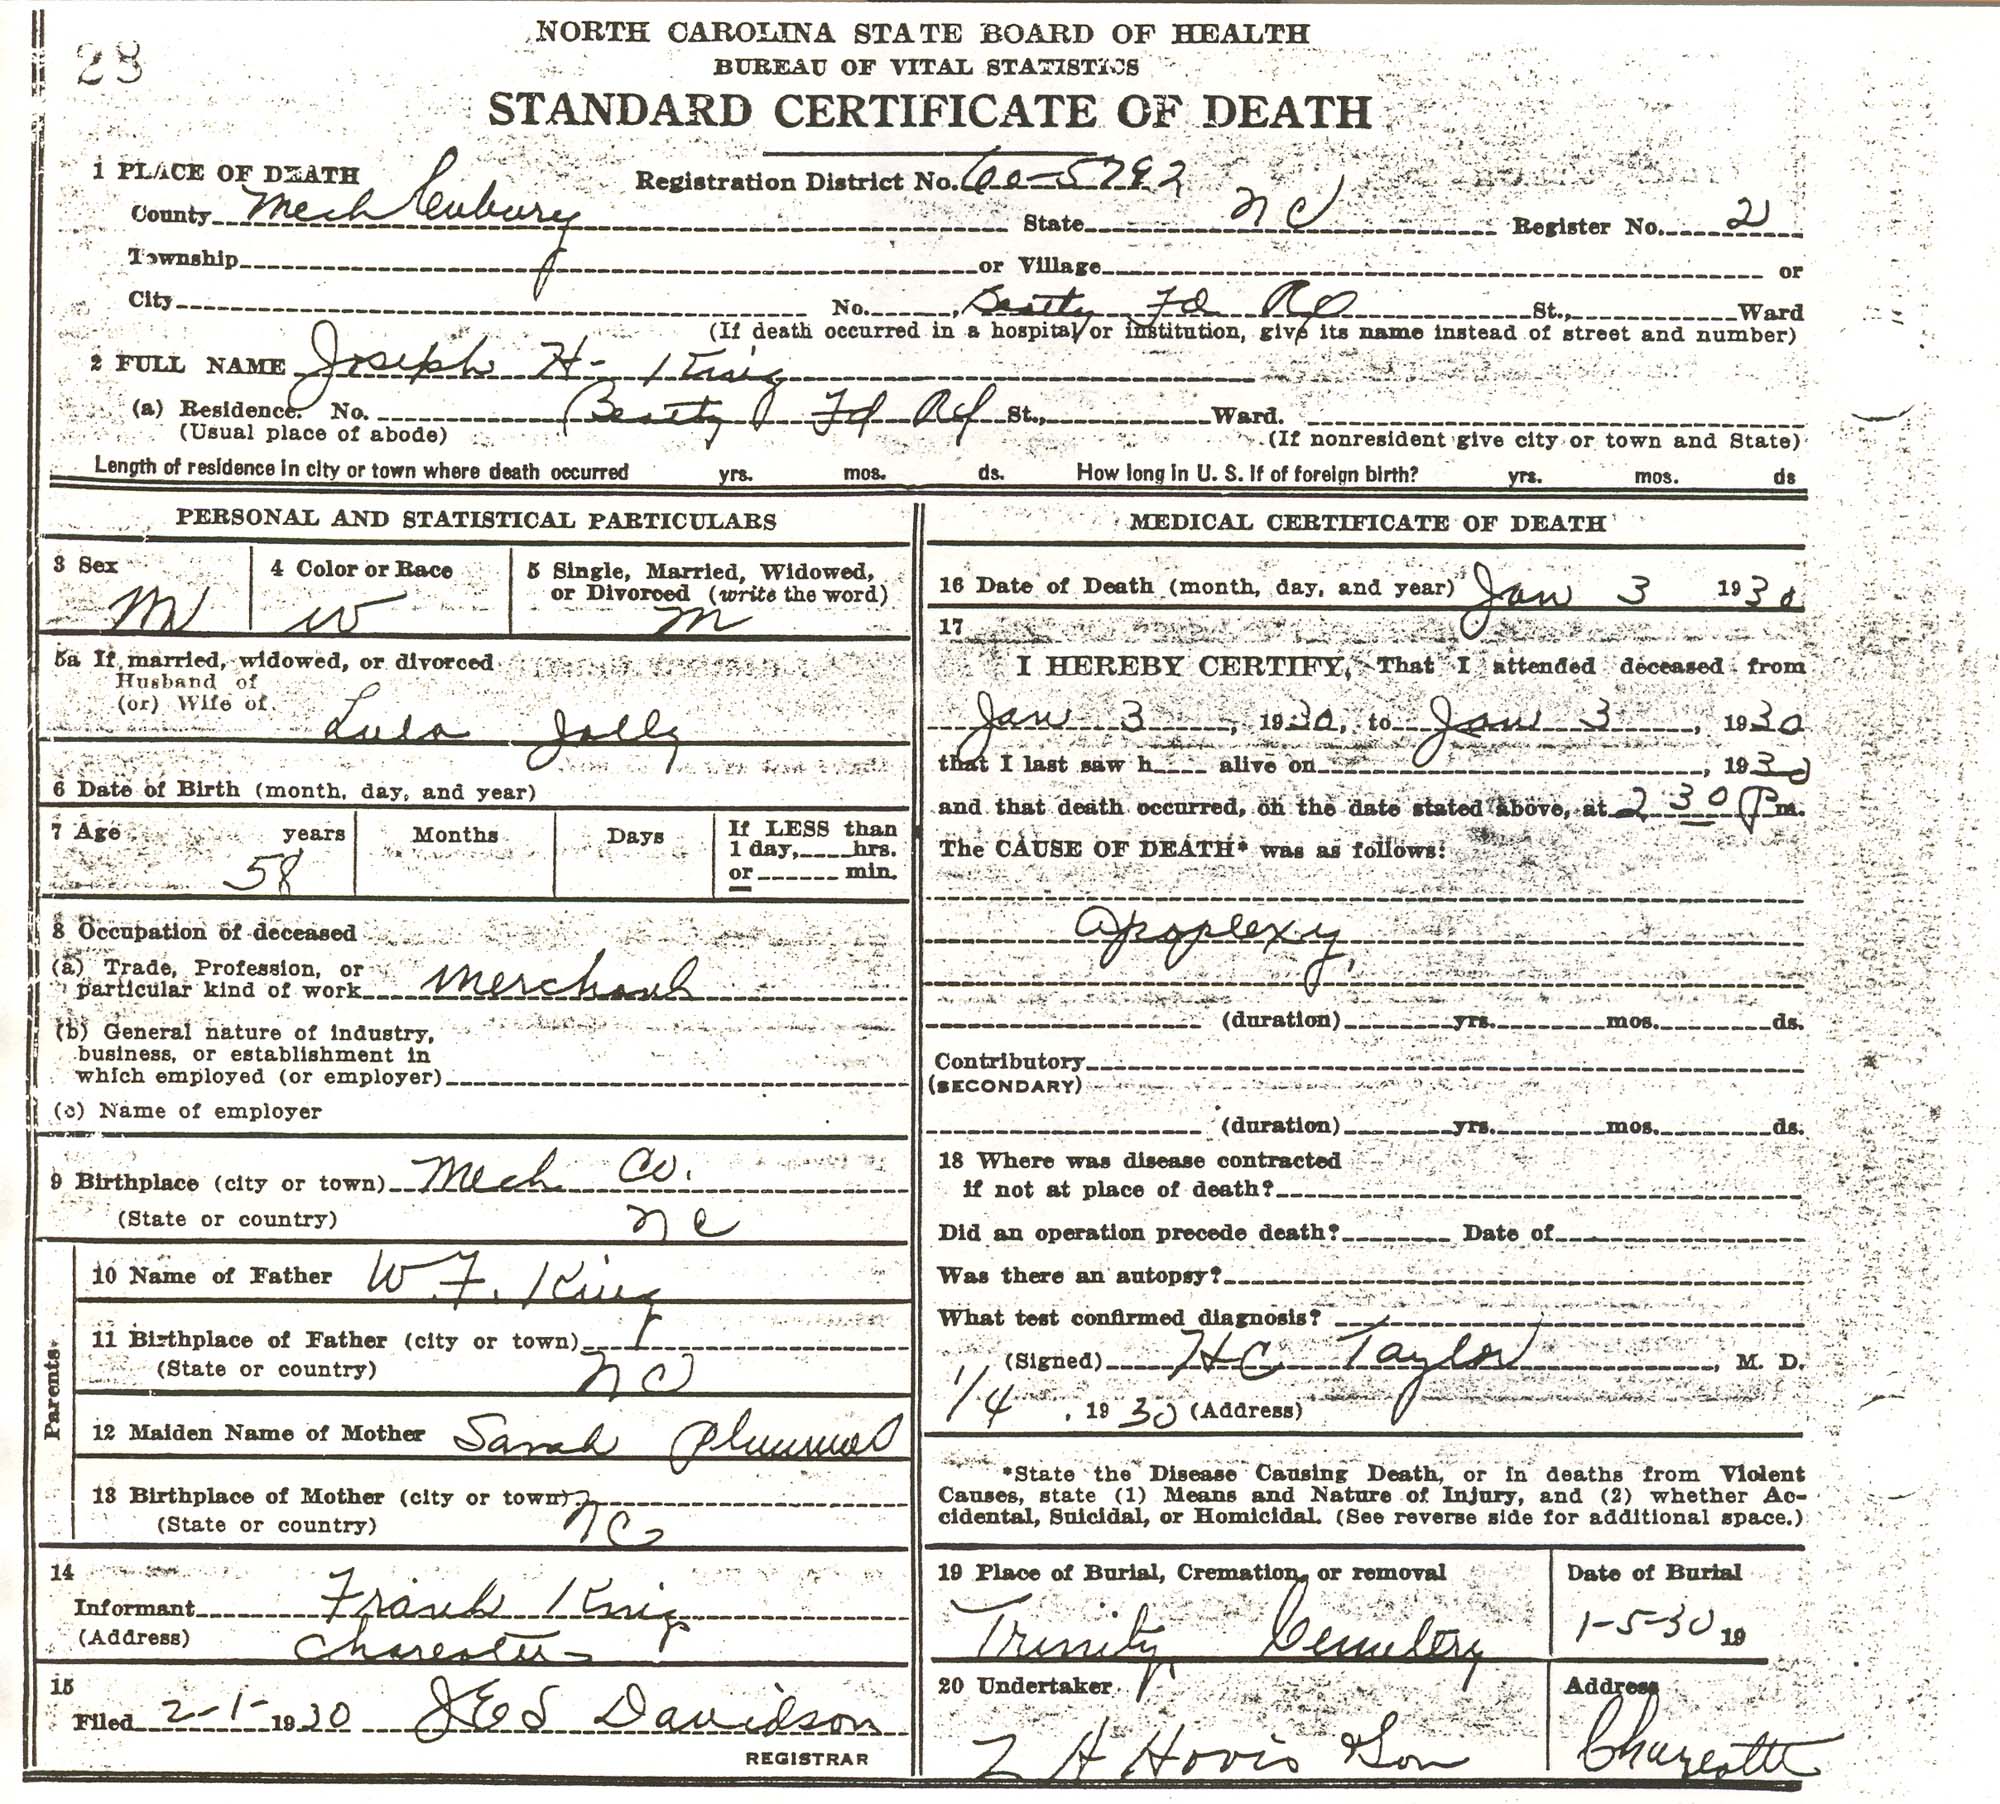 28
NORTH CAROLINA STATE BOARD OF HEALTH
BUREAU OF VITAL STATISTICS
STANDARD CERTIFICATE OF DEATH
1 PLACE OF DEATH Registration District No. 60-5792
County Mecklenburg State NC Register No. 2
Township or Village or
City No. Beatty Fd Rd St., Ward
(If death occurred in a hospital or institution, give its name instead of street and number)
2 FULL NAME Joseph H- King
(a) Residence. No. Beatty Fd Rd St., Ward.
(Usual place of abode) (If nonresident give city or town and State)
Length of residence in city or town where death occurred yrs. mos. ds. How long in U. S. if of foreign birth? yrs. mos. ds
PERSONAL AND STATISTICAL PARTICULARS
3 Sex 4 Color or Race 5 Single, Married, Widowed,
or Divorced (write the word)
M W M
5a If married, widowed, or divorced
Husband of
(or) Wife of. Lula Jolly
6 Date of Birth (month, day, and year)
7 Age years Months Days If LESS than
1 day, hrs.
58 or min.
8 Occupation of deceased
(a) Trade, Profession, or
particular kind of work Merchant
(b) General nature of industry,
business, or establishment in
which employed (or employer)
(c) Name of employer
9 Birthplace (city or town) Mech Co.
(State or country) NC
Parents.
10 Name of Father W. F. King
11 Birthplace of Father (city or town)
(State or country) NC
12 Maiden Name of Mother Sarah Plummer
13 Birthplace of Mother (city or town)
(State or country) NC
14
Informant Frank King
(Address) Charlotte
15
Filed 2-1- 1930 J E S Davidson
REGISTRAR
MEDICAL CERTIFICATE OF DEATH
16 Date of Death (month, day, and year) Jan 3 1930
17
I HEREBY CERTIFY, That I attended deceased from
Jan 3, 1930, to Jan 3, 1930
that I last saw h alive on , 1930
and that death occurred, on the date stated above, at 2 30 P m.
The CAUSE OF DEATH* was as follows:
Apoplexy
(duration) yrs. mos. ds.
Contributory
(SECONDARY)
(duration) yrs. mos. ds.
18 Where was disease contracted
if not at place of death?
Did an operation precede death? Date of
Was there an autopsy?
What test confirmed diagnosis?
(Signed) H C Taylor, M. D.
1/4, 1930 (Address)
*State the Disease Causing Death, or in deaths from Violent
Causes, state (1) Means and Nature of Injury, and (2) whether Ac-
cidental, Suicidal, or Homicidal. (See reverse side for additional space.)
19 Place of Burial, Cremation, or removal Date of Burial
Trinity Cemetery 1-5-30 19
20 Undertaker Address
Z A Hovis & Son Charlotte